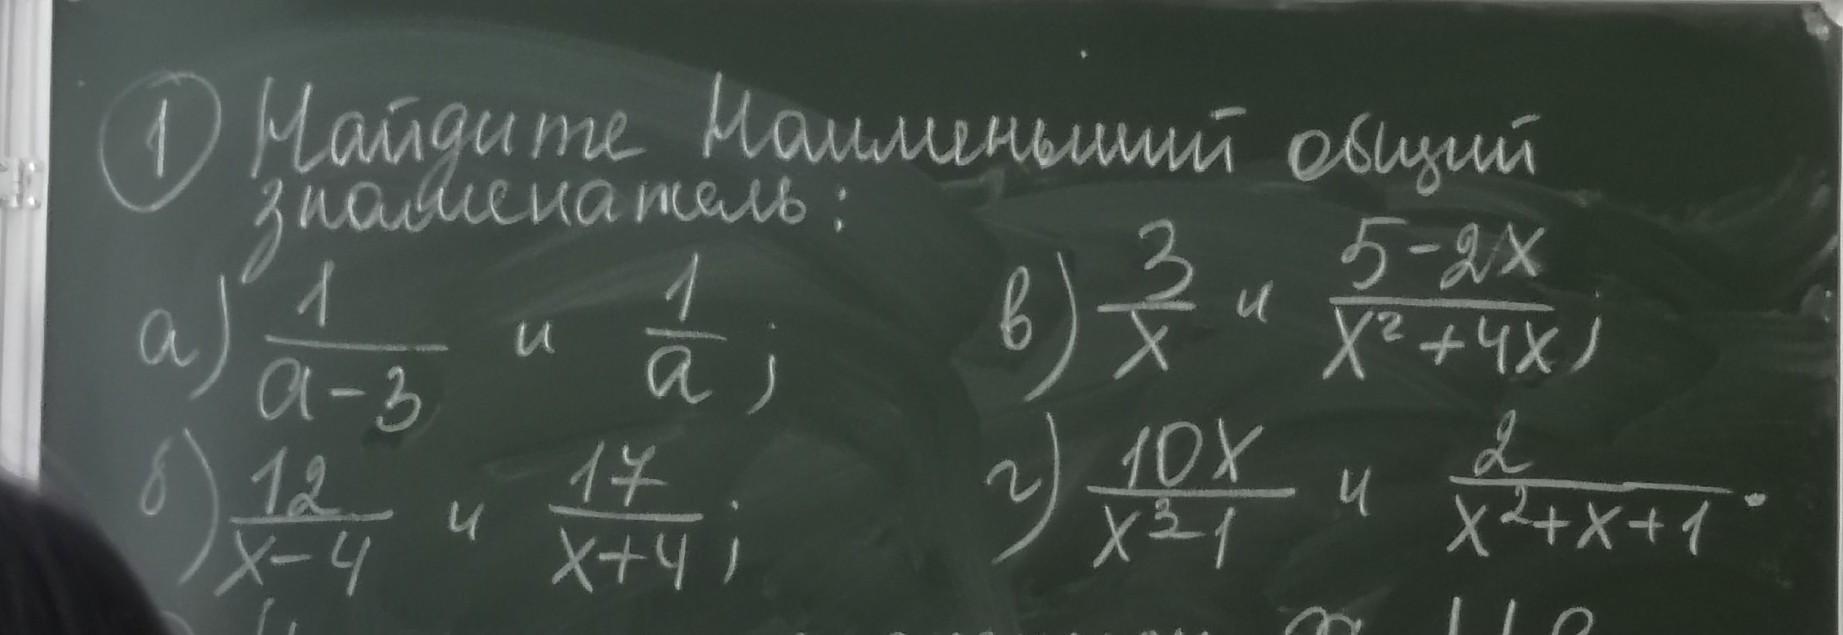 ① Найдите Наименьший общий
знаменатель:
а) 1/(a-3) и 1/a;
б) 12/(x-4) и 17/(x+4);
в) 3/x и (5-2x)/(x²+4x);
г) 10x/(x³-1) и 2/(x²+x+1).